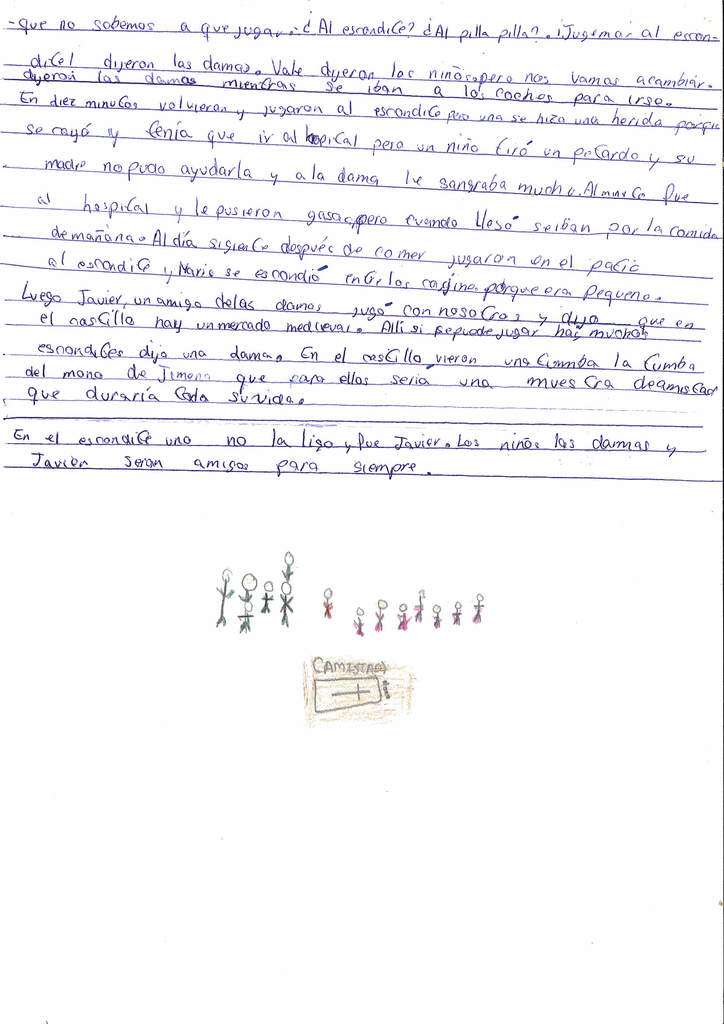 -que no sabemos a que jugar. ¿Al escondite? ¿Al pilla pilla?. ¡Jugemos al escon-
dite! dijeron las damas. Vale dijeron los niños, pero nos vamos a cambiar.
dijeron las damas mientras se iban a los coches para irse.
En diez minutos volvieron y jugaron al escondite pero una se hizo una herida porque
se cayó y tenía que ir al hospital pero un niño tiró un petardo y su
madre no pudo ayudarla y a la dama le sangraba mucho. Al minuto fue
al hospital y le pusieron gasas, pero cuando llegó se iban por la comida
de mañana. Al día sigiente después de comer jugaron en el patio
al escondite y Mario se escondió entre los cojines porque era pequeño.
Luego Javier, un amigo de las damas jugó con nosotros y dijo que en
el castillo hay un mercado medieval. Allí si se puede jugar hay muchos
escondites dijo una dama. En el castillo vieron una tumba la tumba
del mono de Jimena que para ellos seria una muestra de amistad
que duraría toda su vida.
En el escondite uno no la ligo y fue Javier. Los niños las damas y
Javier seran amigos para siempre.